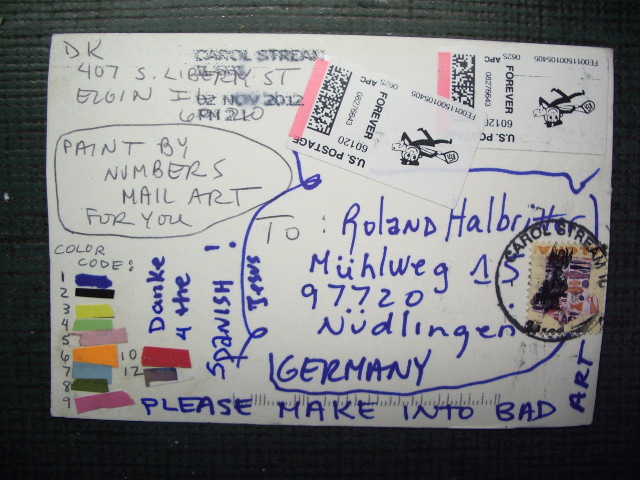 DK
407 S. LIBERTY ST
ELGIN IL
60120
CAROL STREAM
02 NOV 2012
U.S. POSTAGE
60120
FOREVER
08276643
062S APC
FE001150010S405
U.S. POSTAGE
60120
FOREVER
08276643
062S APC
FE001150010S405
PAINT BY
NUMBERS
MAIL ART
FOR YOU
TO: Roland Halbritter
Mühlweg 15
97720
Nüdlingen
GERMANY
CAROL STREAM
COLOR
CODE:
1
2
3
4
5
6
7
8
9
10
12
Danke
4 the
SPANISH!
Jesus
PLEASE MAKE INTO BAD ART